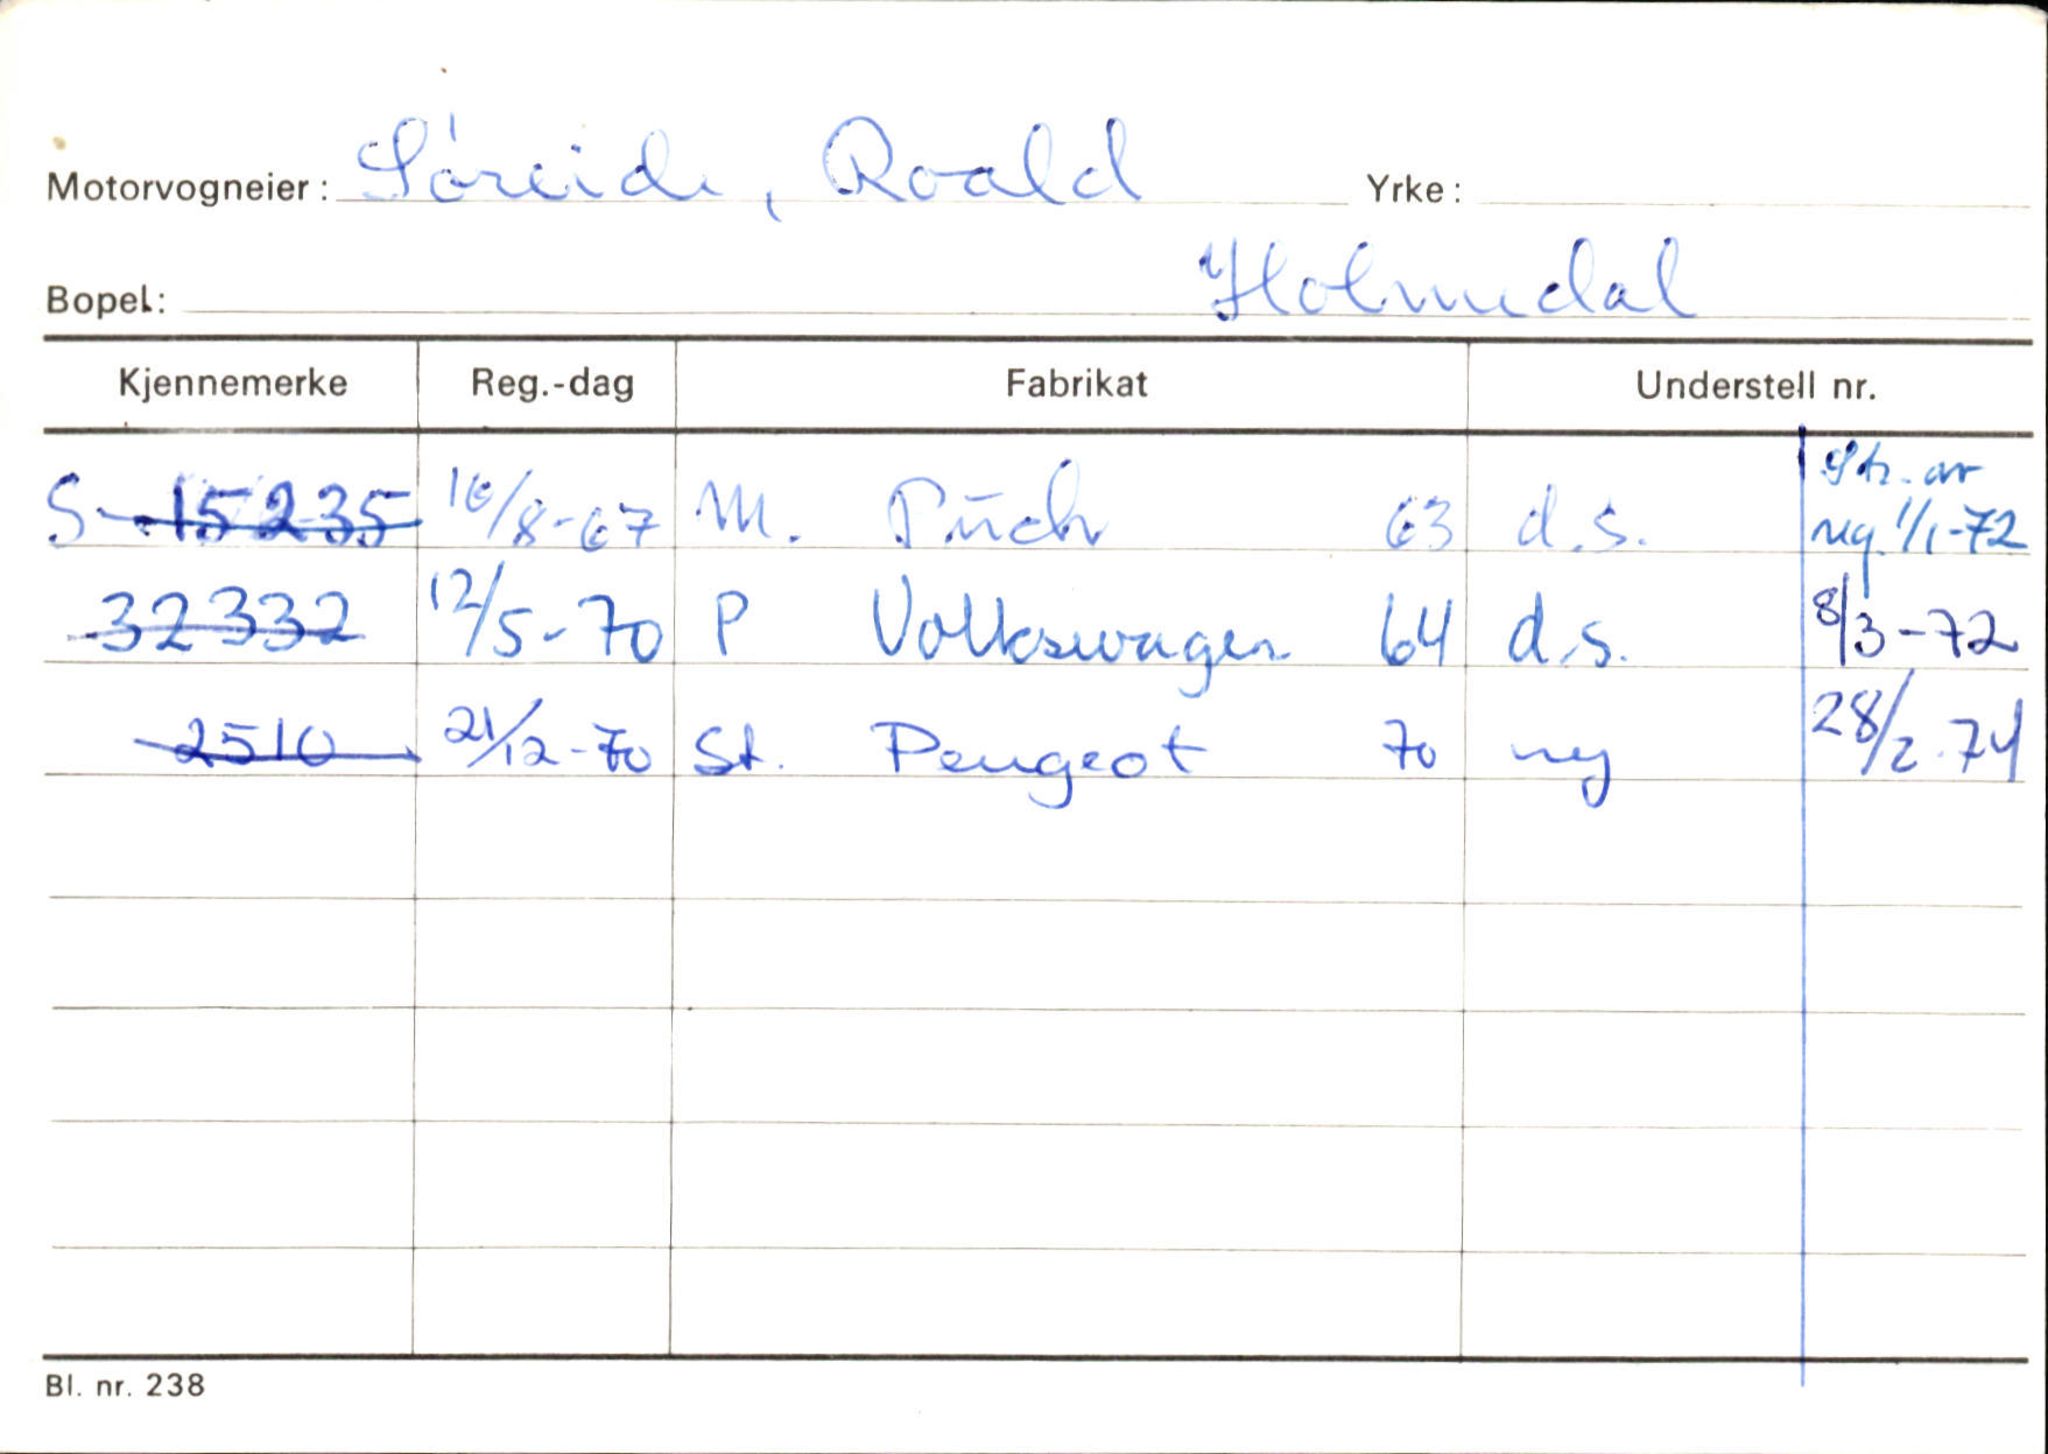 Motorvogneier: Søreide, Roald Yrke:
Bopel: Holmedal
Kjennemerke Reg.-dag Fabrikat Understell nr.
S 15235 16/8-67 M. Puch 63 d.s. Str. av reg. 1/1-72
32332 12/5-70 P Volkswagen 64 d.s. 8/3-72
2510 21/12-70 St. Peugeot 70 ny 28/2.74
Bl. nr. 238